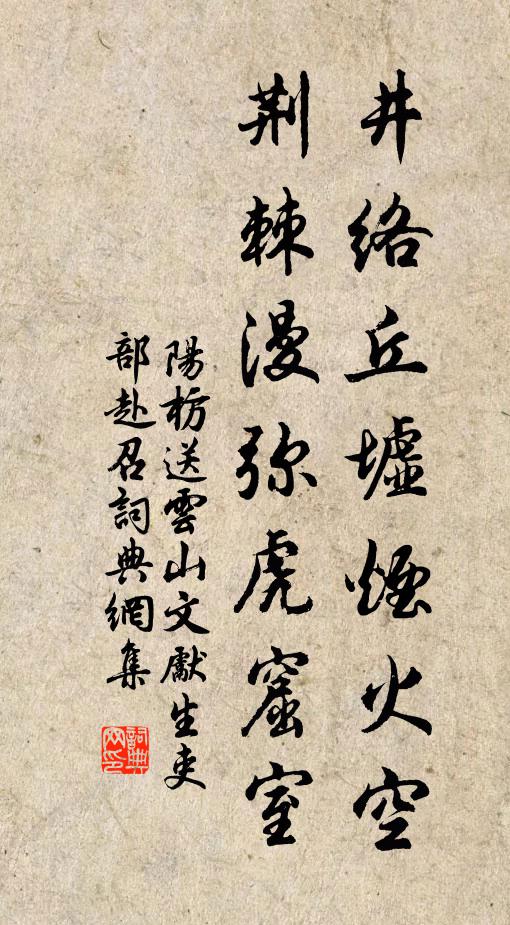 井络丘墟煙火空
荆棘漫弥虎窟室
陽枋送雲山文獻生吏
部赴召詞典網集
詞典
网印